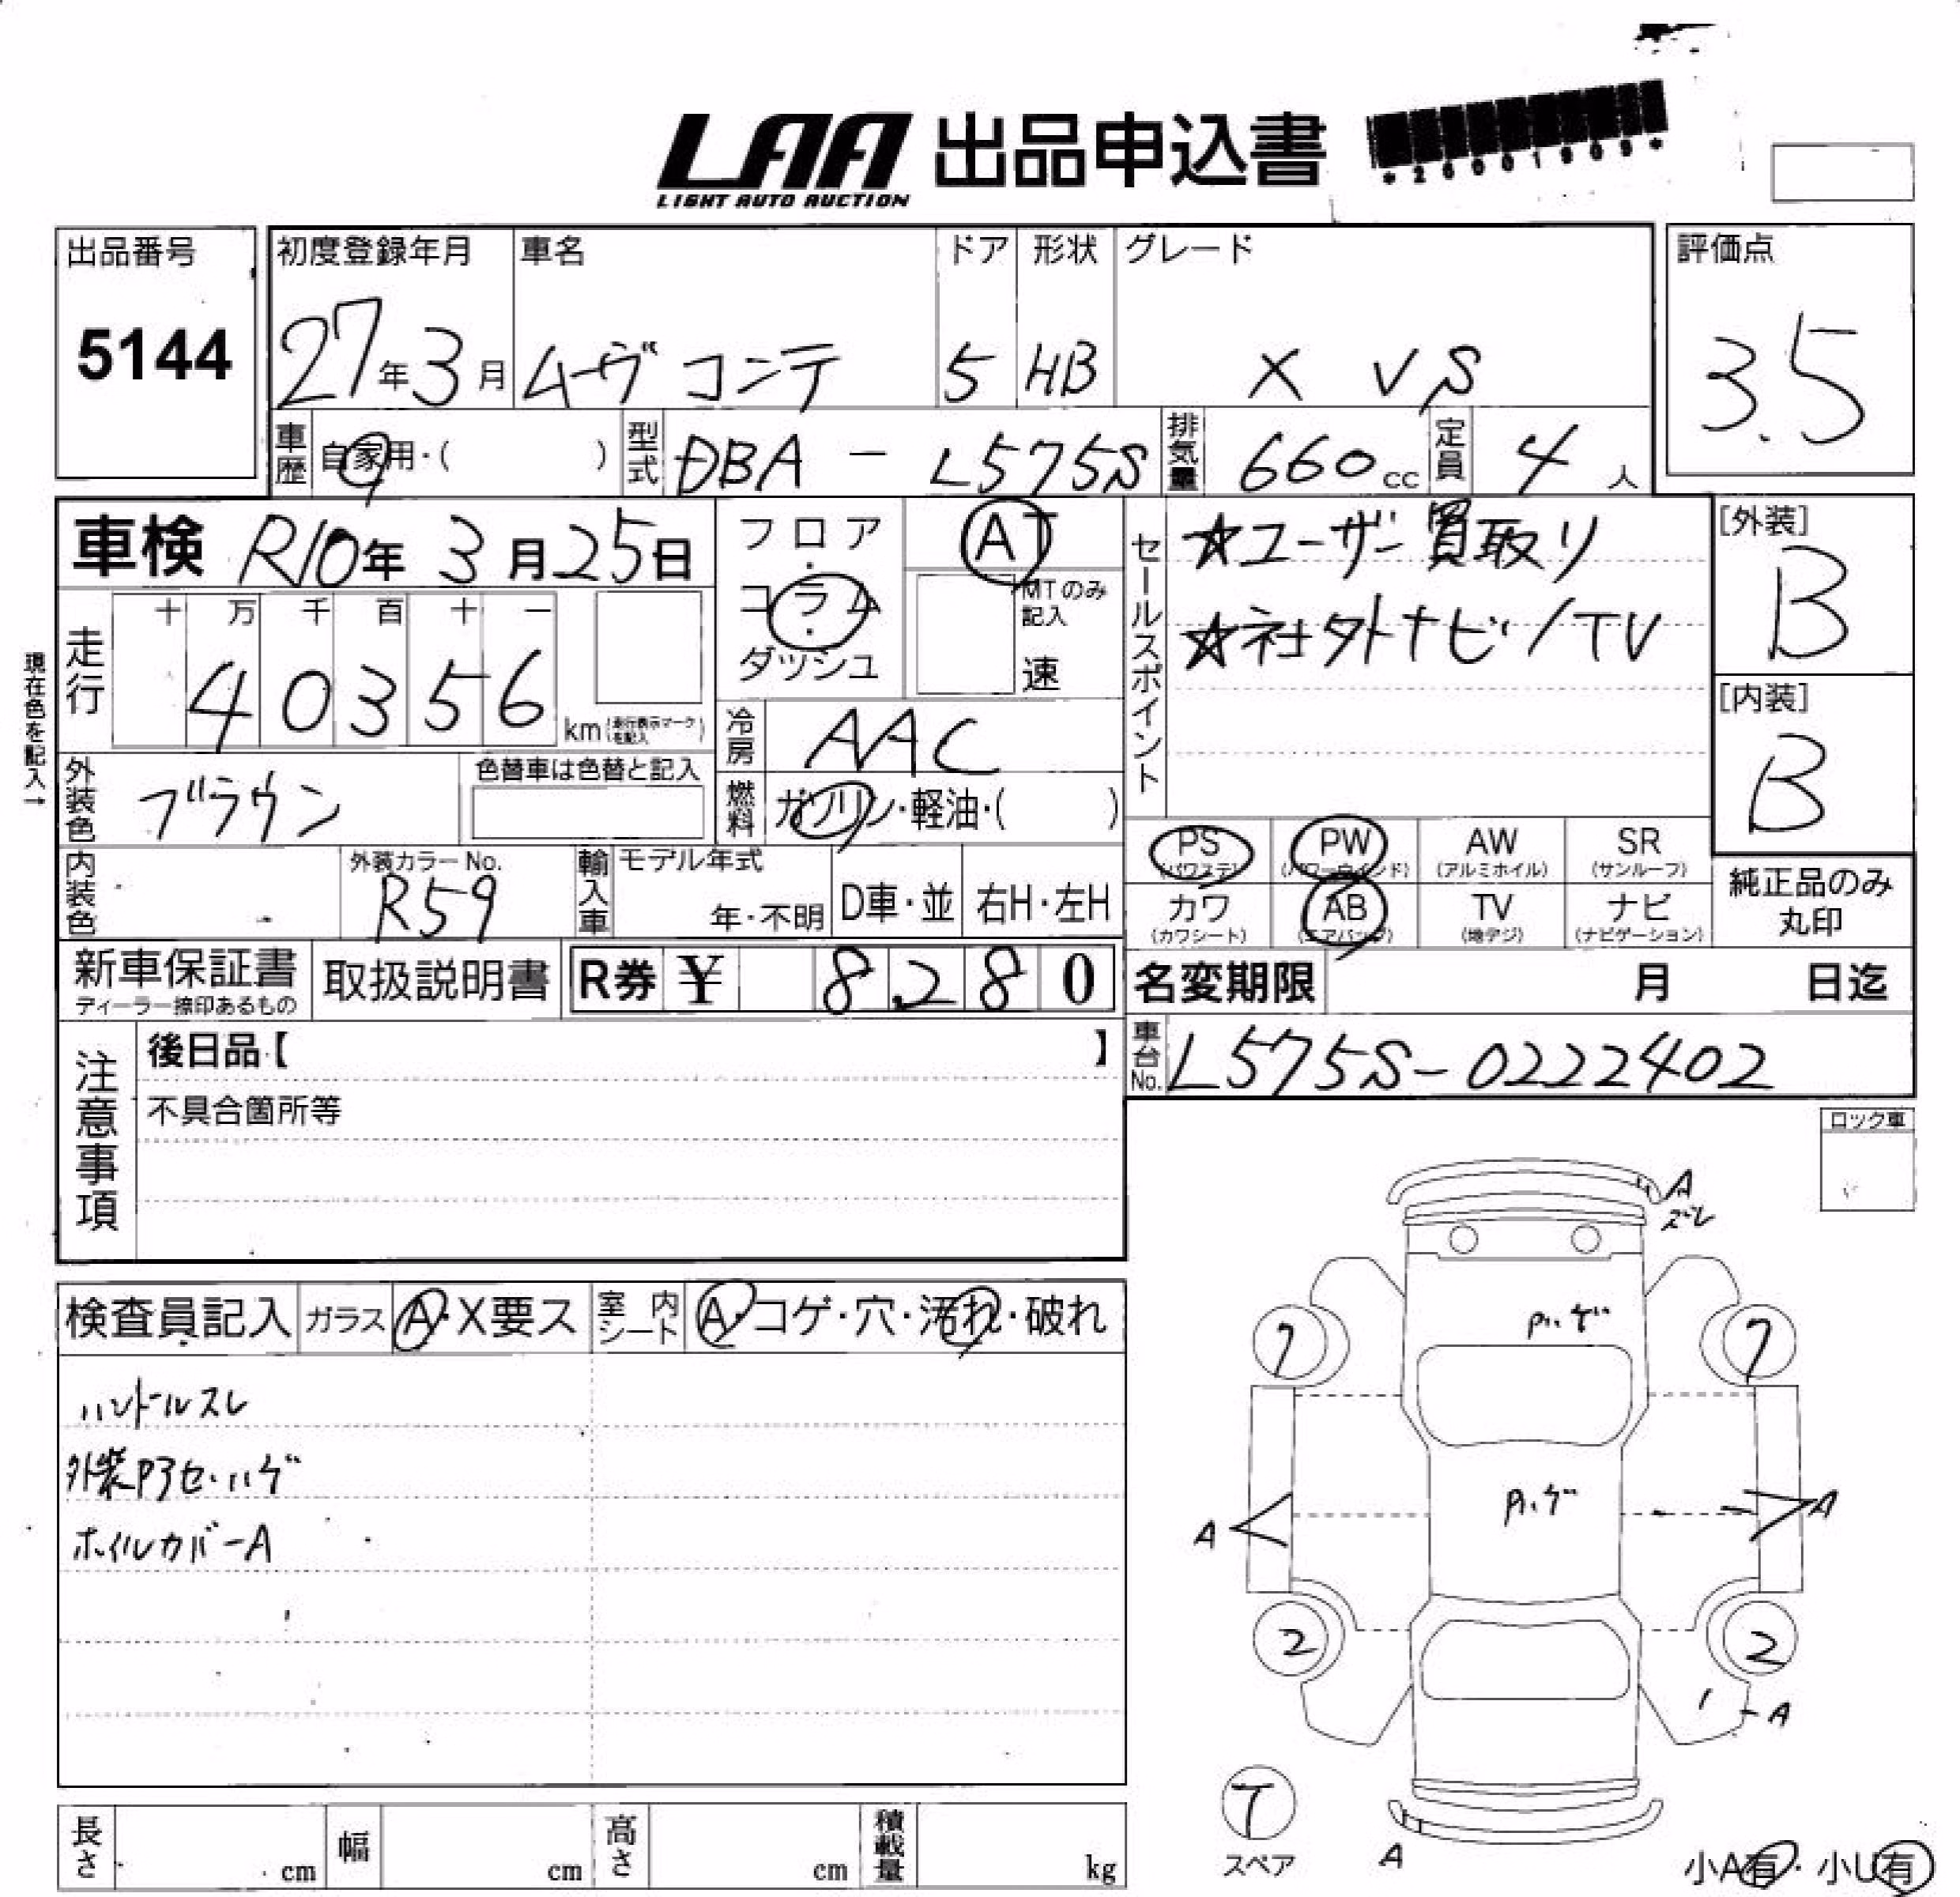 LAA 出品申込書
LIGHT AUTO AUCTION
*26001909*
出品番号
5144
初度登録年月
27年3月
車名
ムーヴ コンテ
ドア
5
形状
HB
グレード
X VS
評価点
3.5
車歴
自家用・( )
型式
DBA - L575S
排気量
660cc
定員
4人
車検 R10年3月25日
フロア
・
コラム
・
ダッシュ
AT
MTのみ記入
速
セールスポイント
☆ユーザー買取り
☆社外ナビ/TV
[外装]
B
[内装]
B
現在色を記入→
走行
十 万 千 百 十 一
4 0 3 5 6
km (走行表示マークを記入)
冷房
AAC
外装色
ブラウン
色替車は色替と記入
燃料
ガソリン・軽油・( )
PS
(パワステ)
PW
(パワーウインド)
AW
(アルミホイル)
SR
(サンルーフ)
カワ
(カワシート)
AB
(エアバッグ)
TV
(地デジ)
ナビ
(ナビゲーション)
純正品のみ
丸印
内装色
外装カラーNo.
R59
輸入車
モデル年式
年・不明
D車・並
右H・左H
新車保証書
ディーラー捺印あるもの
取扱説明書
R券 ¥ 8280
名変期限 月 日迄
車台No.
L575S-0222402
注意事項
後日品【 】
不具合箇所等
ロック車
A
ズレ
検査員記入
ガラス
A・X要ス
室内シート
A・コゲ・穴・汚れ・破れ
ハンドルスレ
外装Pアセ・ハゲ
ホイルカバーA
7
7
A
A
2
2
A
T
スペア
A
小A有・小U有
長さ
cm
幅
cm
高さ
cm
積載量
kg